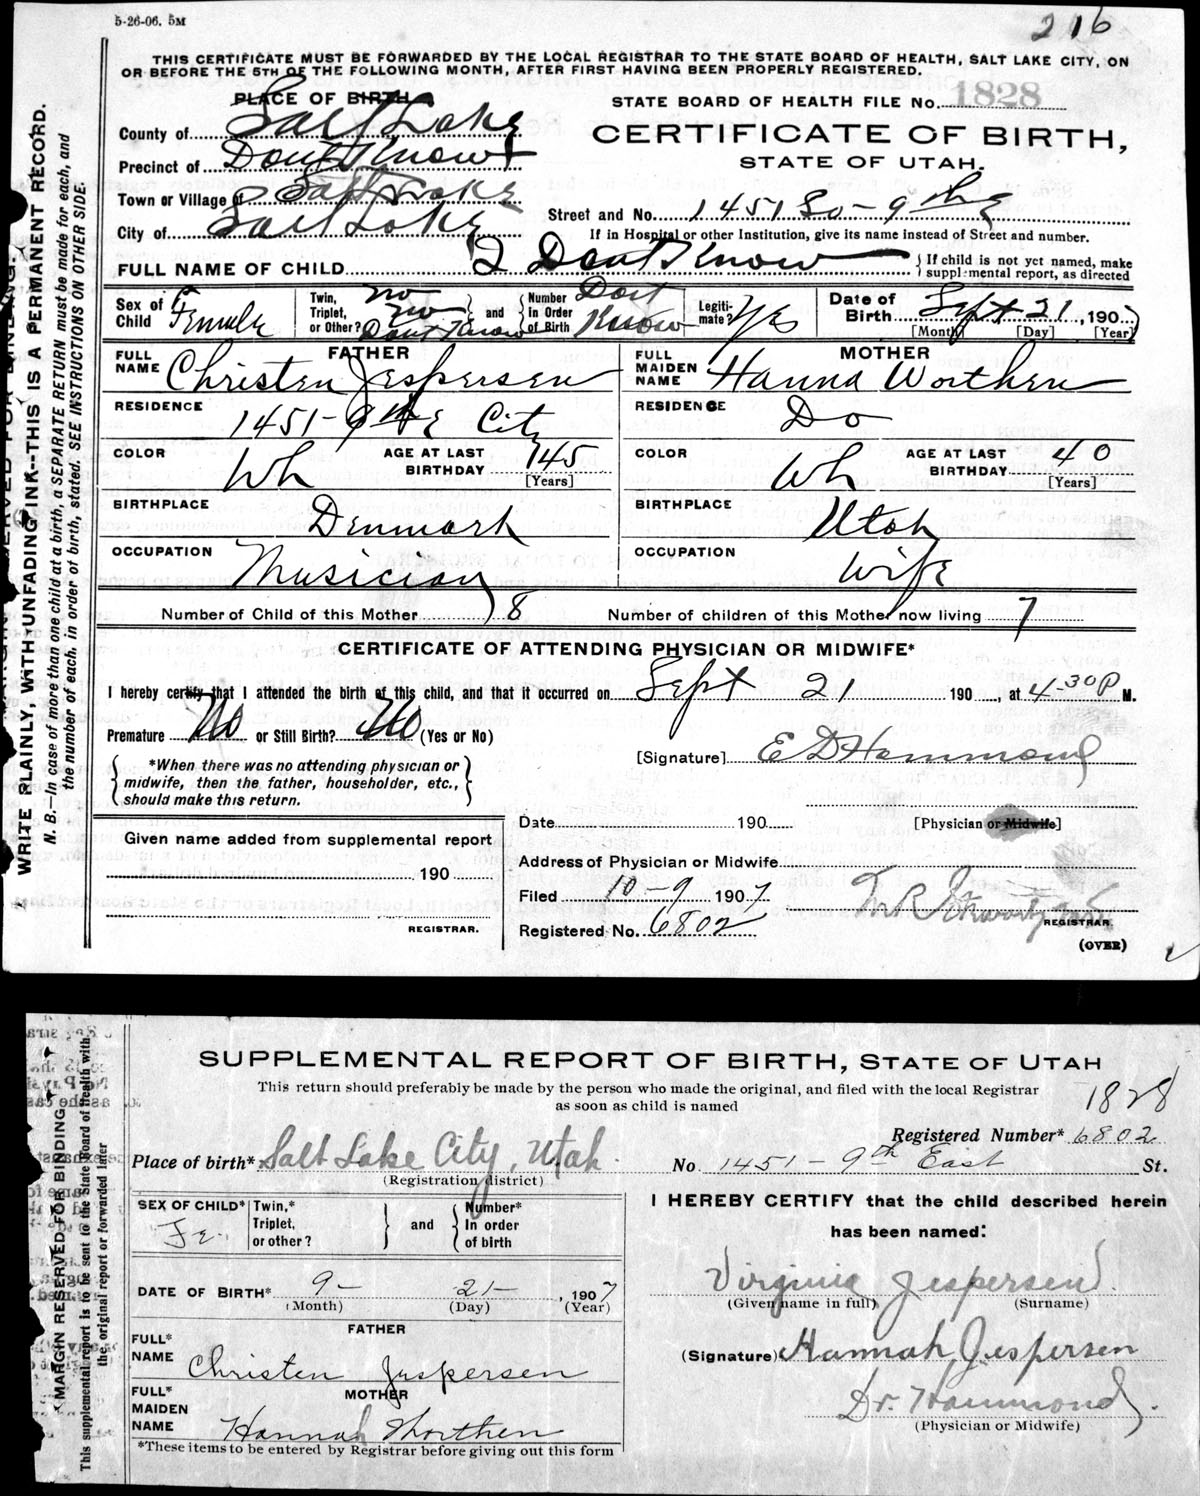 5-26-06. 5M
216
THIS CERTIFICATE MUST BE FORWARDED BY THE LOCAL REGISTRAR TO THE STATE BOARD OF HEALTH, SALT LAKE CITY, ON
OR BEFORE THE 5TH OF THE FOLLOWING MONTH, AFTER FIRST HAVING BEEN PROPERLY REGISTERED.
PLACE OF BIRTH
STATE BOARD OF HEALTH FILE No. 1828
County of Salt Lake
CERTIFICATE OF BIRTH,
Precinct of Dont Know
STATE OF UTAH.
Town or Village of Salt Lake
Street and No. 1451 So - 9th E
City of Salt Lake
If in Hospital or other Institution, give its name instead of Street and number.
FULL NAME OF CHILD I Dont Know
If child is not yet named, make
supplemental report, as directed
Sex of Child Female
Twin, Triplet, or Other? no no Dont Know
and
Number in Order of Birth Dont Know
Legitimate? Yes
Date of Birth Sept 21, 1907
[Month] [Day] [Year]
FATHER
FULL NAME Christen Jespersen
MOTHER
FULL MAIDEN NAME Hanna Worthen
RESIDENCE 1451-9th E City
RESIDENCE Do
COLOR Wh
AGE AT LAST BIRTHDAY 45 [Years]
COLOR Wh
AGE AT LAST BIRTHDAY 40 [Years]
BIRTHPLACE Denmark
BIRTHPLACE Utah
OCCUPATION Musician
OCCUPATION Wife
Number of Child of this Mother 8
Number of children of this Mother now living 7
CERTIFICATE OF ATTENDING PHYSICIAN OR MIDWIFE*
I hereby certify that I attended the birth of this child, and that it occurred on Sept 21 190, at 4-30P M.
Premature No or Still Birth? No (Yes or No)
[Signature] E D Hammond
*When there was no attending physician or
midwife, then the father, householder, etc.,
should make this return.
Date 190
[Physician or Midwife]
Given name added from supplemental report
190
REGISTRAR.
Address of Physician or Midwife
Filed 10-9 1907
REGISTRAR
Registered No. 6802
(OVER)
WRITE PLAINLY, WITH UNFADING INK--THIS IS A PERMANENT RECORD.
N. B.—In case of more than one child at a birth, a SEPARATE RETURN must be made for each, and
the number of each. in order of birth, stated. SEE INSTRUCTIONS ON OTHER SIDE.
SUPPLEMENTAL REPORT OF BIRTH, STATE OF UTAH
This return should preferably be made by the person who made the original, and filed with the local Registrar
as soon as child is named
1828
Registered Number* 6802
Place of birth* Salt Lake City, Utah.
(Registration district)
No. 1451 - 9th East St.
SEX OF CHILD* Fe.
Twin,* Triplet, or other?
and
Number* In order of birth
I HEREBY CERTIFY that the child described herein
has been named:
DATE OF BIRTH* 9- 21-, 1907
(Month) (Day) (Year)
Virginia Jespersen
(Given name in full) (Surname)
FATHER
FULL* NAME Christen Jespersen
(Signature) Hannah Jespersen
MOTHER
FULL* MAIDEN NAME Hannah Worthen
Dr. Hammond.
(Physician or Midwife)
*These items to be entered by Registrar before giving out this form
MARGIN RESERVED FOR BINDING
This supplemental report is to be sent to the State Board of Health with
the original report or forwarded later